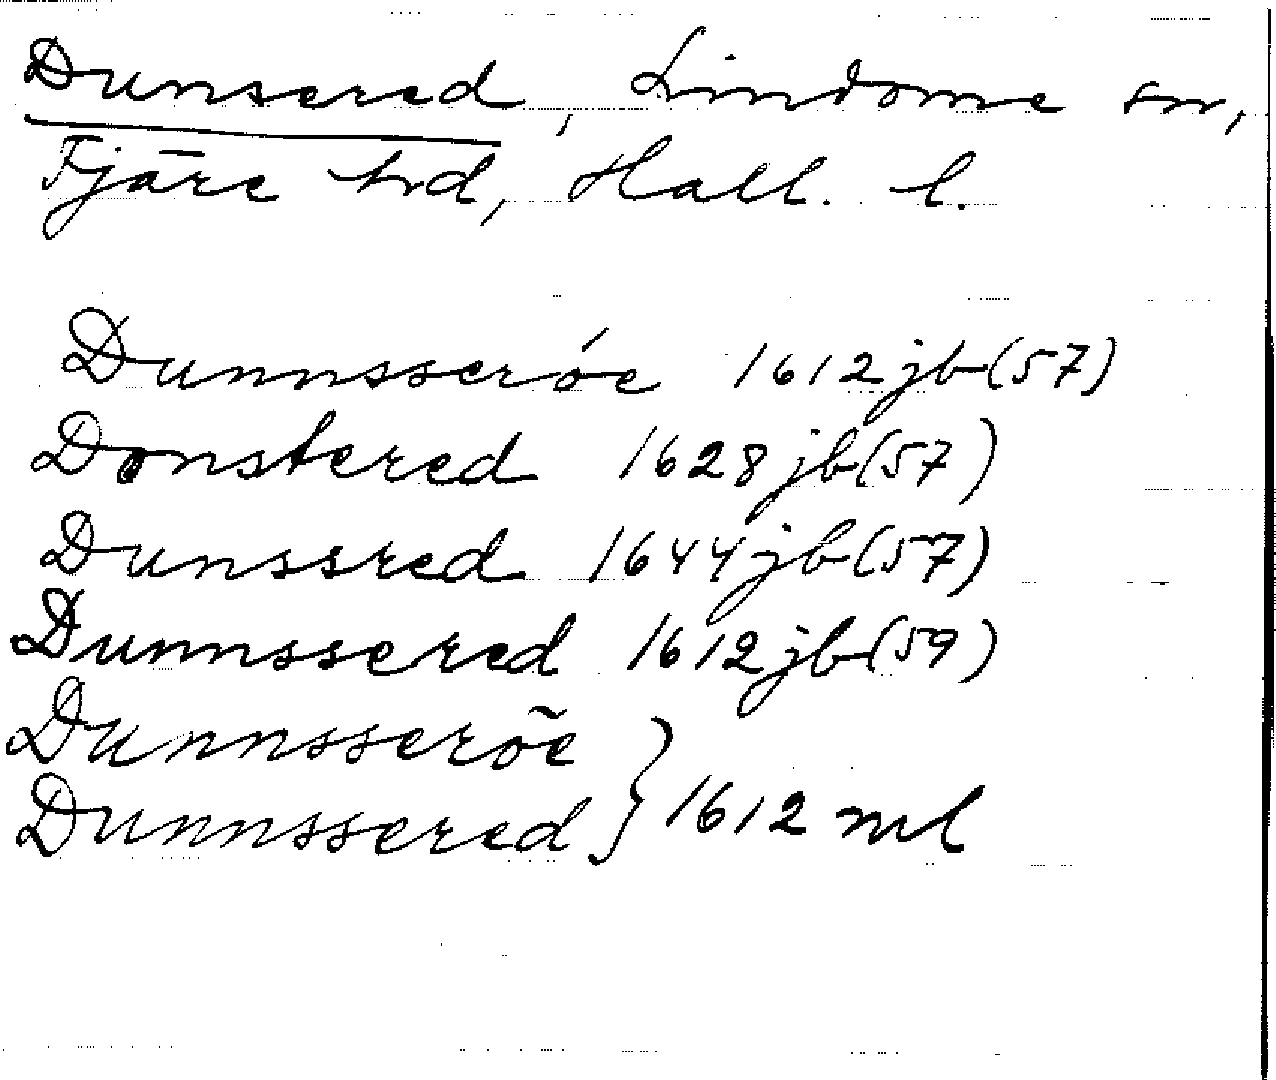 Dunsered, Lindome sn,
Fjäre hrd, Hall. l.
Dunnsseróe 1612 jb (57)
Donstered 1628 jb (57)
Dunssred 1644 jb (57)
Dunnssered 1612 jb (59)
Dunnsserõe
Dunnssered } 1612 ml